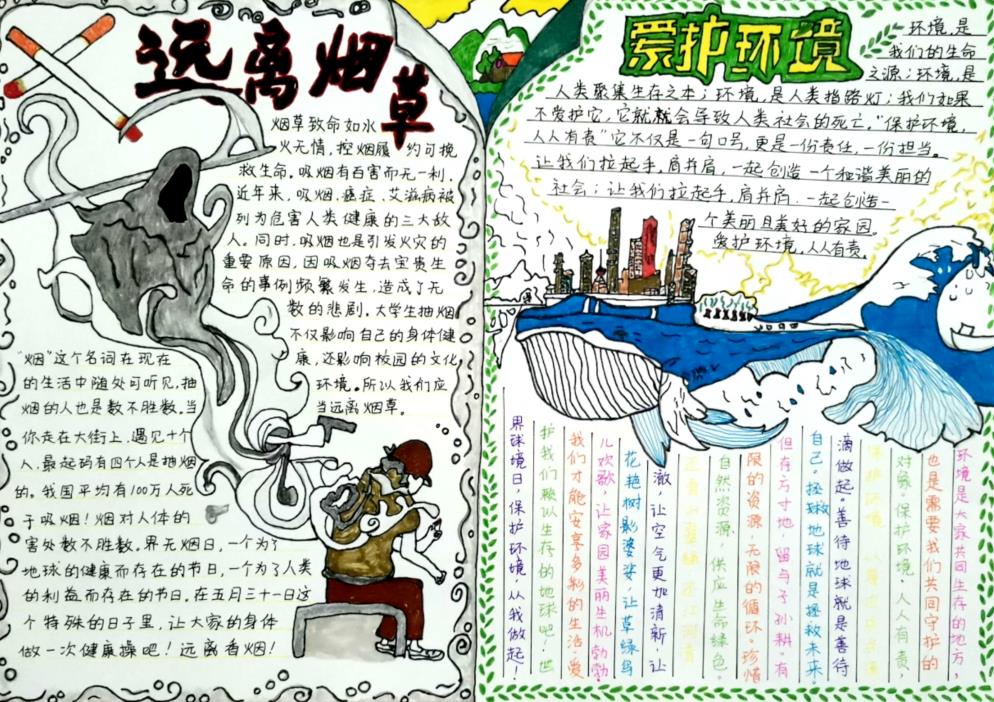 远离烟草
烟草致命如水
火无情,控烟履约可挽
救生命。吸烟有百害而无一利,
近年来,吸烟、癌症、艾滋病被
列为危害人类健康的三大敌
人。同时,吸烟也是引发火灾的
重要原因,因吸烟夺去宝贵生
命的事例频繁发生,造成了无
数的悲剧。大学生抽烟
不仅影响自己的身体健
康,还影响校园的文化
环境。所以我们应
当远离烟草。
“烟”这个名词在现在
的生活中随处可听见,抽
烟的人也是数不胜数。当
你走在大街上,遇见十个
人,最起码有四个人是抽烟
的。我国平均有100万人死
于吸烟!烟对人体的
害处数不胜数。界无烟日,一个为了
地球的健康而存在的节日,一个为了人类
的利益而存在的节日。在五月三十一日这
个特殊的日子里,让大家的身体
做一次健康操吧!远离香烟!
爱护环境
环境,是
我们的生命
之源;环境,是
人类聚集生存之本;环境,是人类指路灯;我们如果
不爱护它,它就就会导致人类社会的死亡。“保护环境,
人人有责”它不仅是一句口号,更是一份责任,一份担当。
让我们拉起手,肩并肩,一起创造一个和谐美丽的
社会;让我们拉起手,肩并肩,一起创造一
个美丽且美好的家园。
爱护环境,人人有责。
环境是大家共同生存的地方,
也是需要我们共同守护的
对象。保护环境,人人有责,
保护环境,
滴做起。善待地球就是善待
自己,拯救地球就是拯救未来。
但存方寸地,留与子孙耕。有
限的资源,无限的循环。珍惜
自然资源,供应生命绿色。
还青山碧绿,还江河清
澈,让空气更加清新,让
花艳树影婆娑,让草绿鸟
儿欢歌,让家园美丽生机勃勃
我们才能安享多彩的生活。爱
护我们赖以生存的地球吧!世
界球境日,保护环境,从我做起!